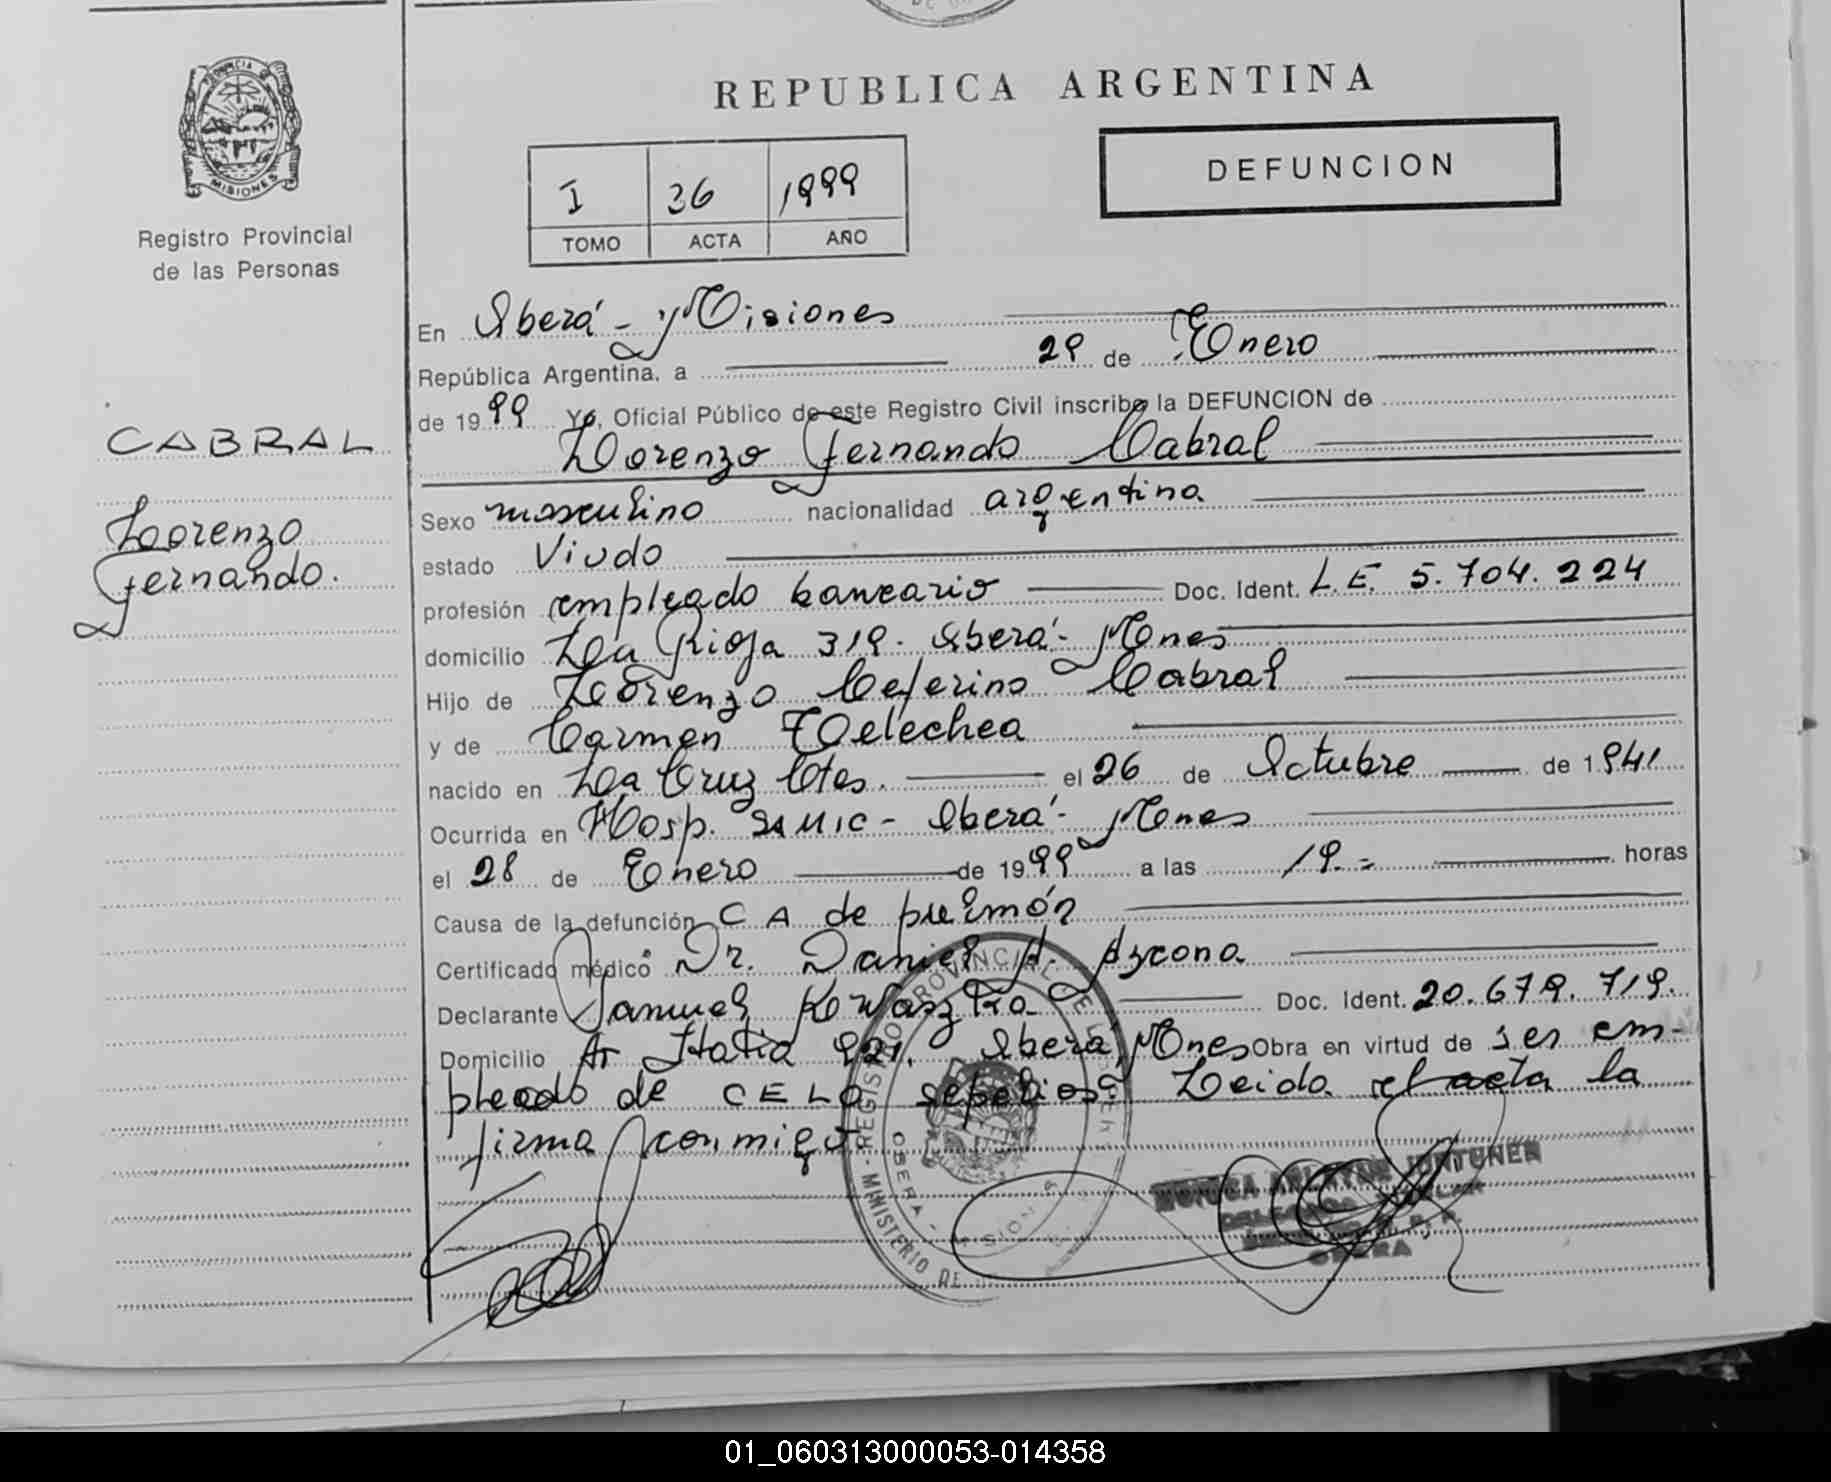 PROVINCIA DE
MISIONES
Registro Provincial
de las Personas
CABRAL
Lorenzo
Fernando.
REPUBLICA ARGENTINA
I 36 1999
TOMO ACTA AÑO
DEFUNCION
En Oberá - Misiones
República Argentina, a 29 de Enero
de 1999 Yo, Oficial Público de este Registro Civil inscribo la DEFUNCION de
Lorenzo Fernando Cabral
Sexo masculino nacionalidad argentina
estado Viudo
profesión empleado bancario Doc. Ident. L.E. 5.704.224
domicilio La Rioja 319. Oberá - Mnes
Hijo de Lorenzo Ceferino Cabral
y de Carmen Telechea
nacido en La Cruz Ctes. el 26 de Octubre de 1941
Ocurrida en Hosp. SAMIC - Oberá - Mnes
el 28 de Enero de 1999 a las 19.= horas
Causa de la defunción CA de pulmón
Certificado médico Dr. Daniel A. Azcona
Declarante Samuel Kowaszka Doc. Ident. 20.679.719.
Domicilio Av Italia 921. Oberá, Mnes Obra en virtud de ser em-
pleado de CELO sepelios. Leida el acta la
firma conmigo
REGISTRO PROVINCIAL DE LAS PER
MINISTERIO DE
OBERA - MISIONES
OBERA
01_060313000053-014358